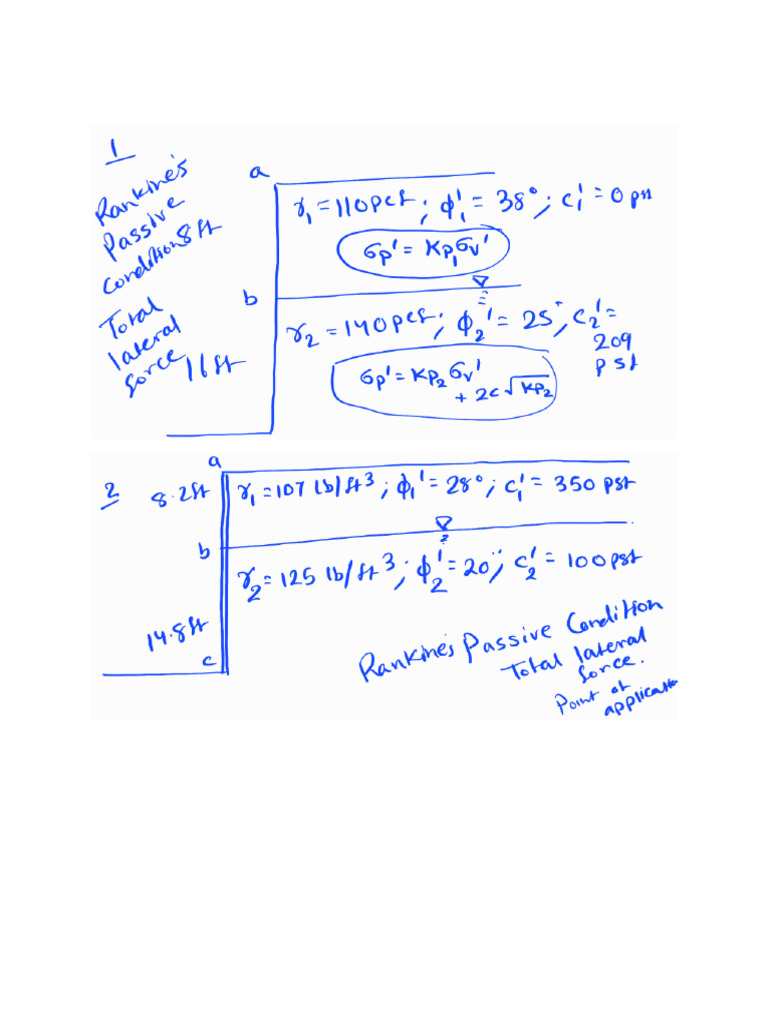 1
Rankine's
Passive
condition
8ft
Total
lateral
force
16ft
a
γ₁ = 110pcf ; φ₁' = 38° ; c₁' = 0 psf
σp' = Kp₁σv'
b
γ₂ = 140pcf ; φ₂' = 25° , c₂' =
209
psf
σp' = Kp₂σv'
+ 2c√Kp₂
2
a
8.2ft
γ₁ = 107 lb/ft³ ; φ₁' = 28° ; c₁' = 350 psf
b
γ₂ = 125 lb/ft³ ; φ₂' = 20° ; c₂' = 100psf
14.8ft
c
Rankine's Passive Condition
Total lateral
force.
Point of
application